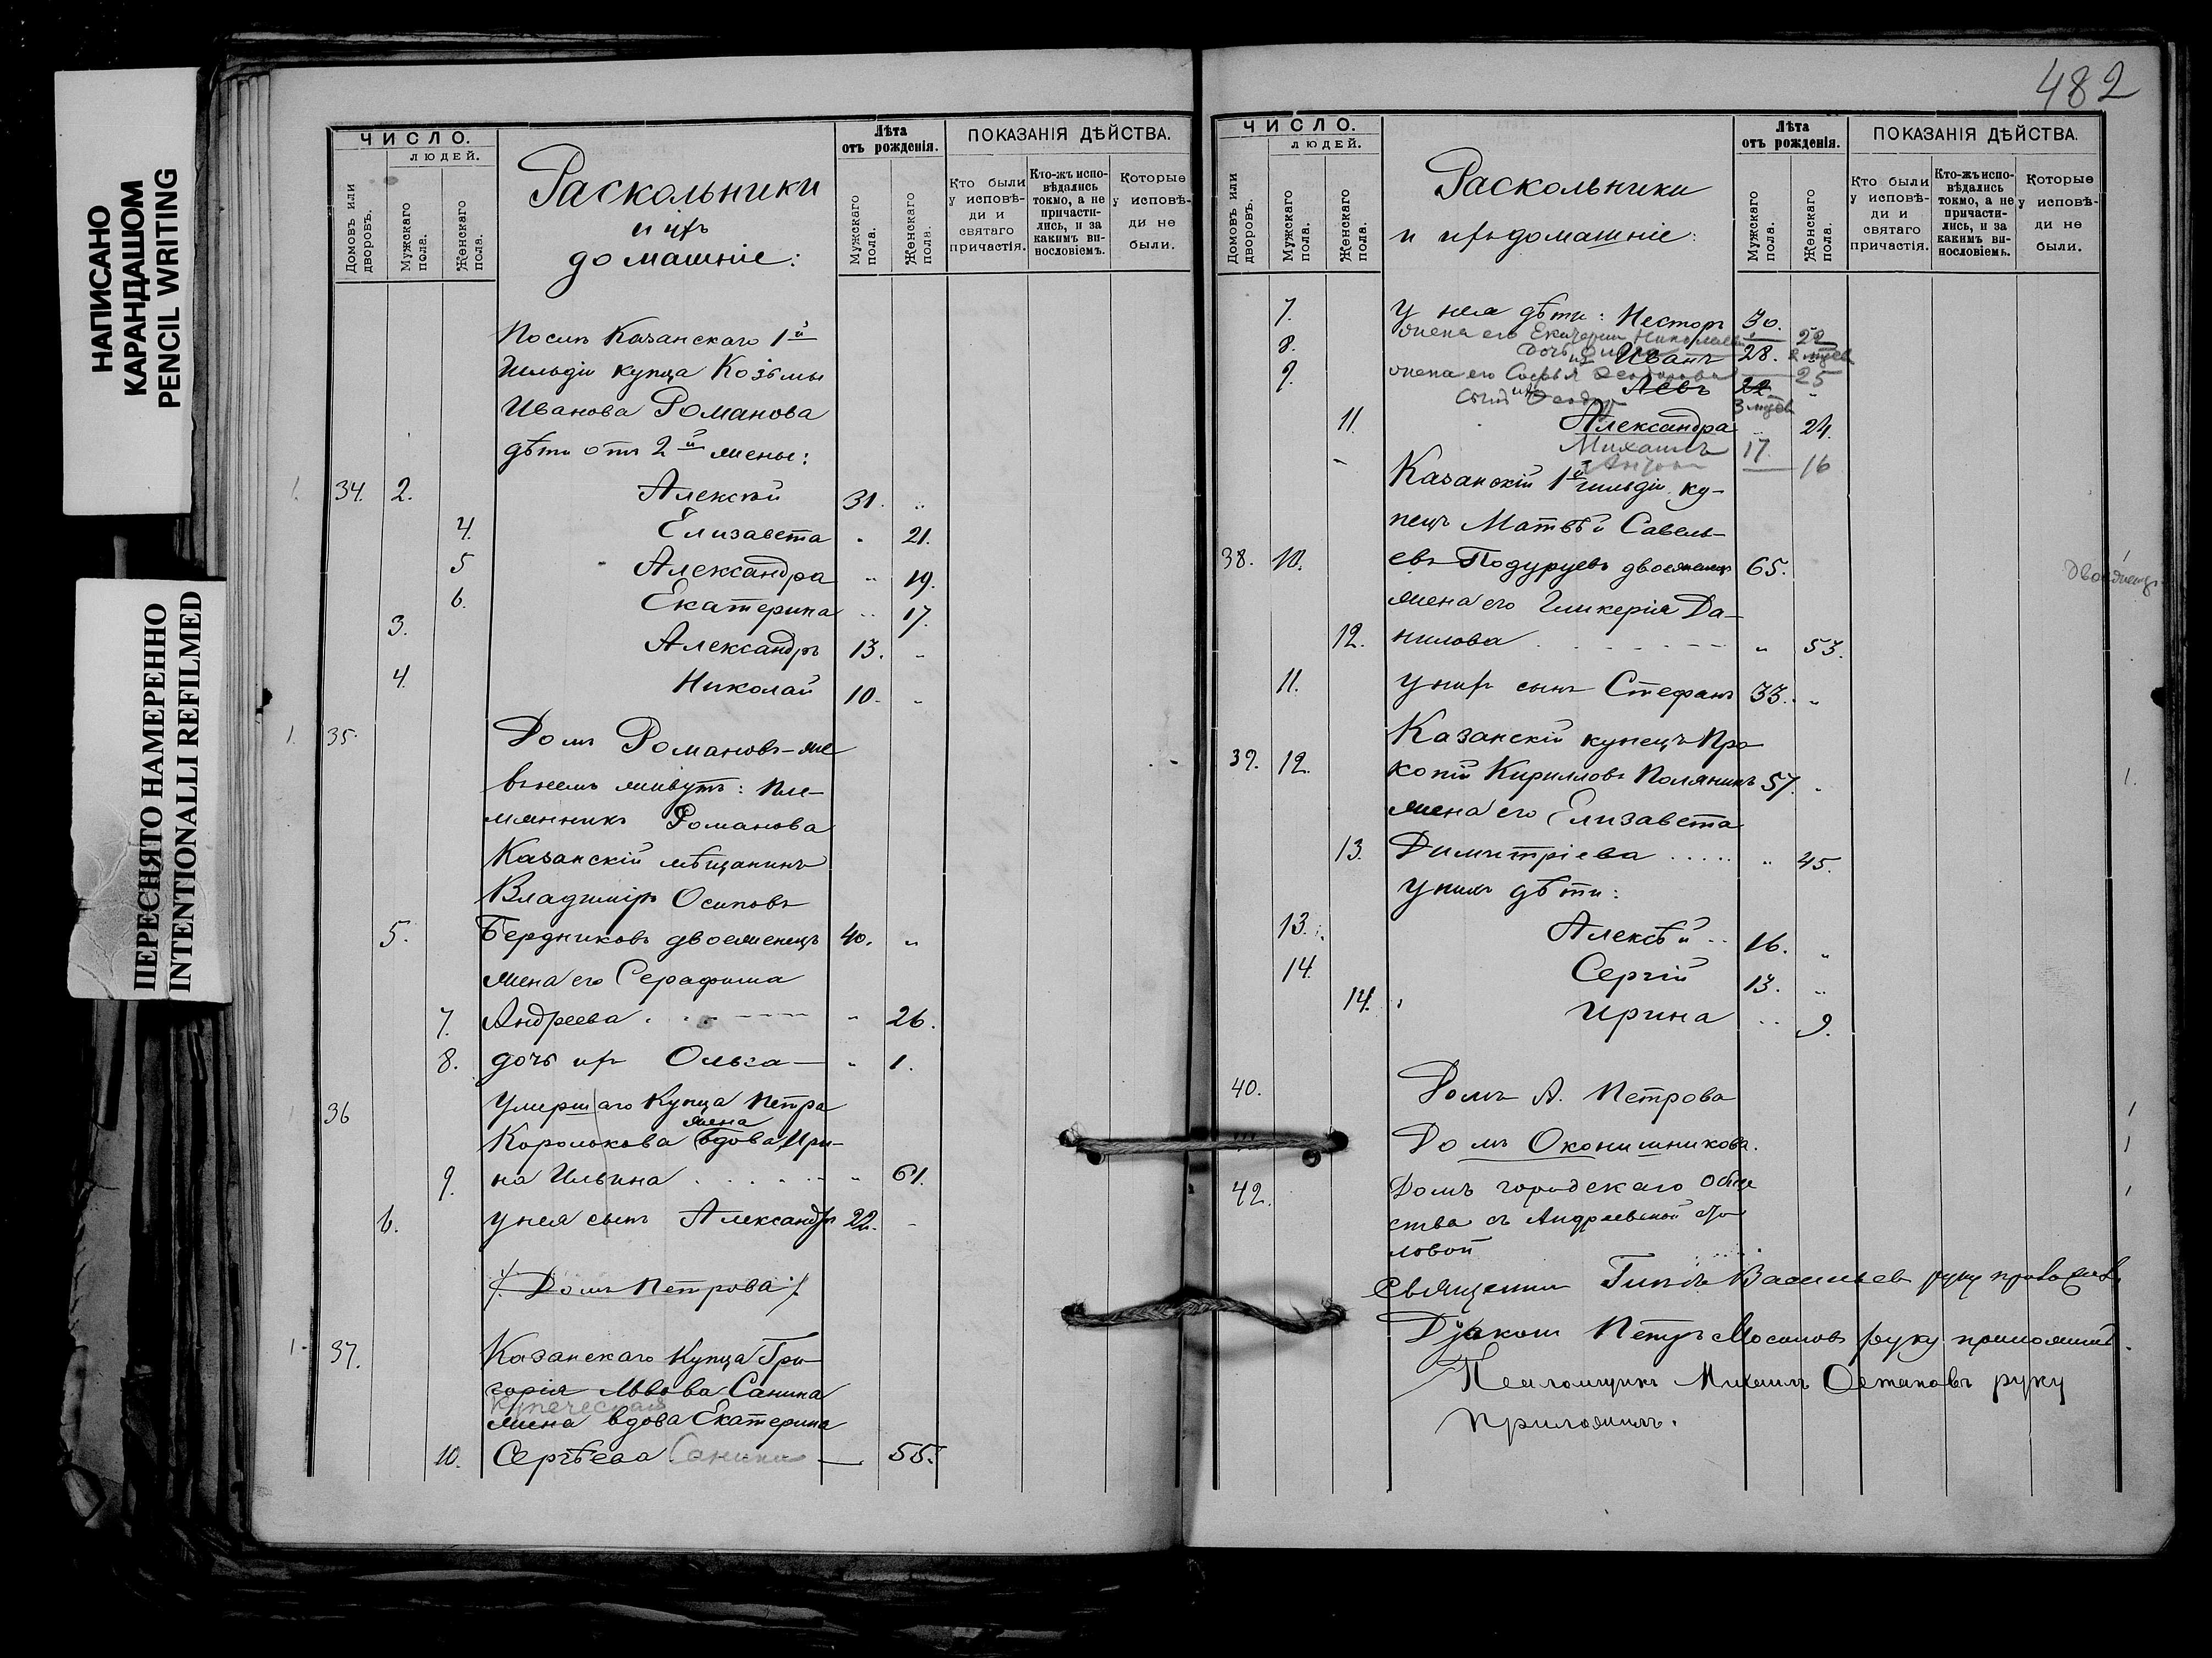 НАПИСАНО
КАРАНДАШОМ
PENCIL WRITING
ПЕРЕСНЯТО НАМЕРЕННО
INTENTIONALLI REFILMED
ЧИСЛО.
ЛЮДЕЙ.
Домовъ или дворовъ.
Мужскаго пола.
Женскаго пола.
Раскольники
и ихъ
домашніе:
Лѣта
отъ рожденія.
Мужскаго пола.
Женскаго пола.
ПОКАЗАНІЯ ДѢЙСТВА.
Кто были у исповѣ-ди и святаго причастія.
Кто-жъ испо-вѣдались токмо, а не причасти-лись, и за какимъ ви-нословіемъ.
Которые у исповѣ-ди не были.
Послѣ Казанскаго 1й
гильдіи купца Козьмы
Иванова Романова
дѣти отъ 2й жены:
1. 34. 2. Алексѣй 31. "
4. Елизавета " 21.
5 Александра " 19.
6. Екатерина " 17.
3. Александръ 13. "
4. Николай 10. "
1. 35. Домъ Романова-же
в немъ живутъ: пле-
мянникъ Романова
Казанскій мѣщанинъ
Владиміръ Осиповъ
5. Бердниковъ двоеженецъ 40. "
жена его Серафима
7. Андреева " 26.
8. дочь ихъ Ольга — " 1.
36 Умершаго Купца Петра
жена
Королькова вдова Ири-
9. на Ильина " 61.
6. у нея сынъ Александръ 22. -
Домъ Петрова
1 37. Казанскаго Купца Гри-
горія Львова Санина
купеческая
жена вдова Екатерина
10. Сергѣева Санина — 55.
482
ЧИСЛО.
ЛЮДЕЙ.
Домовъ или дворовъ.
Мужскаго пола.
Женскаго пола.
Раскольники
и ихъ домашніе:
Лѣта
отъ рожденія.
Мужскаго пола.
Женскаго пола.
ПОКАЗАНІЯ ДѢЙСТВА.
Кто были у исповѣ-ди и святаго причастія.
Кто-жъ испо-вѣдались токмо, а не причасти-лись, и за какимъ ви-нословіемъ.
Которые у исповѣ-ди не были.
7. У нея дѣти: Несторъ 30.
жена его Екатерина 22
8. дочь Иванъ 28.
9. жена его Софья 25
Левъ 22
11. Александра 24.
Михаилъ 17.
16
Казанскій 1й гильдіи ку-
пецъ Матвѣй Савель-
38. 10. евъ Подуруевъ двоеженецъ 65. двоеженецъ
жена его Гликерія Да-
12. нилова " 53.
11. у нихъ сынъ Стефанъ 33. "
Казанскій купецъ Про
39. 12. копій Кирилловъ Полянинъ 57. " 1.
жена его Елизавета
13. Димитріева " 45.
у нихъ дѣти:
13. Алексѣй 16. "
14. Сергій 13. "
14. Ирина 9.
40. Домъ А. Петрова 1
Домъ Оконишникова. 1
42. Домъ городскаго обще 1
ства съ Андреевской сто
ловой
Священник Васильев руку приложилъ
Діаконъ Петръ Мосоловъ руку приложилъ.
Псаломщикъ Михаилъ Остаповъ руку
приложилъ.